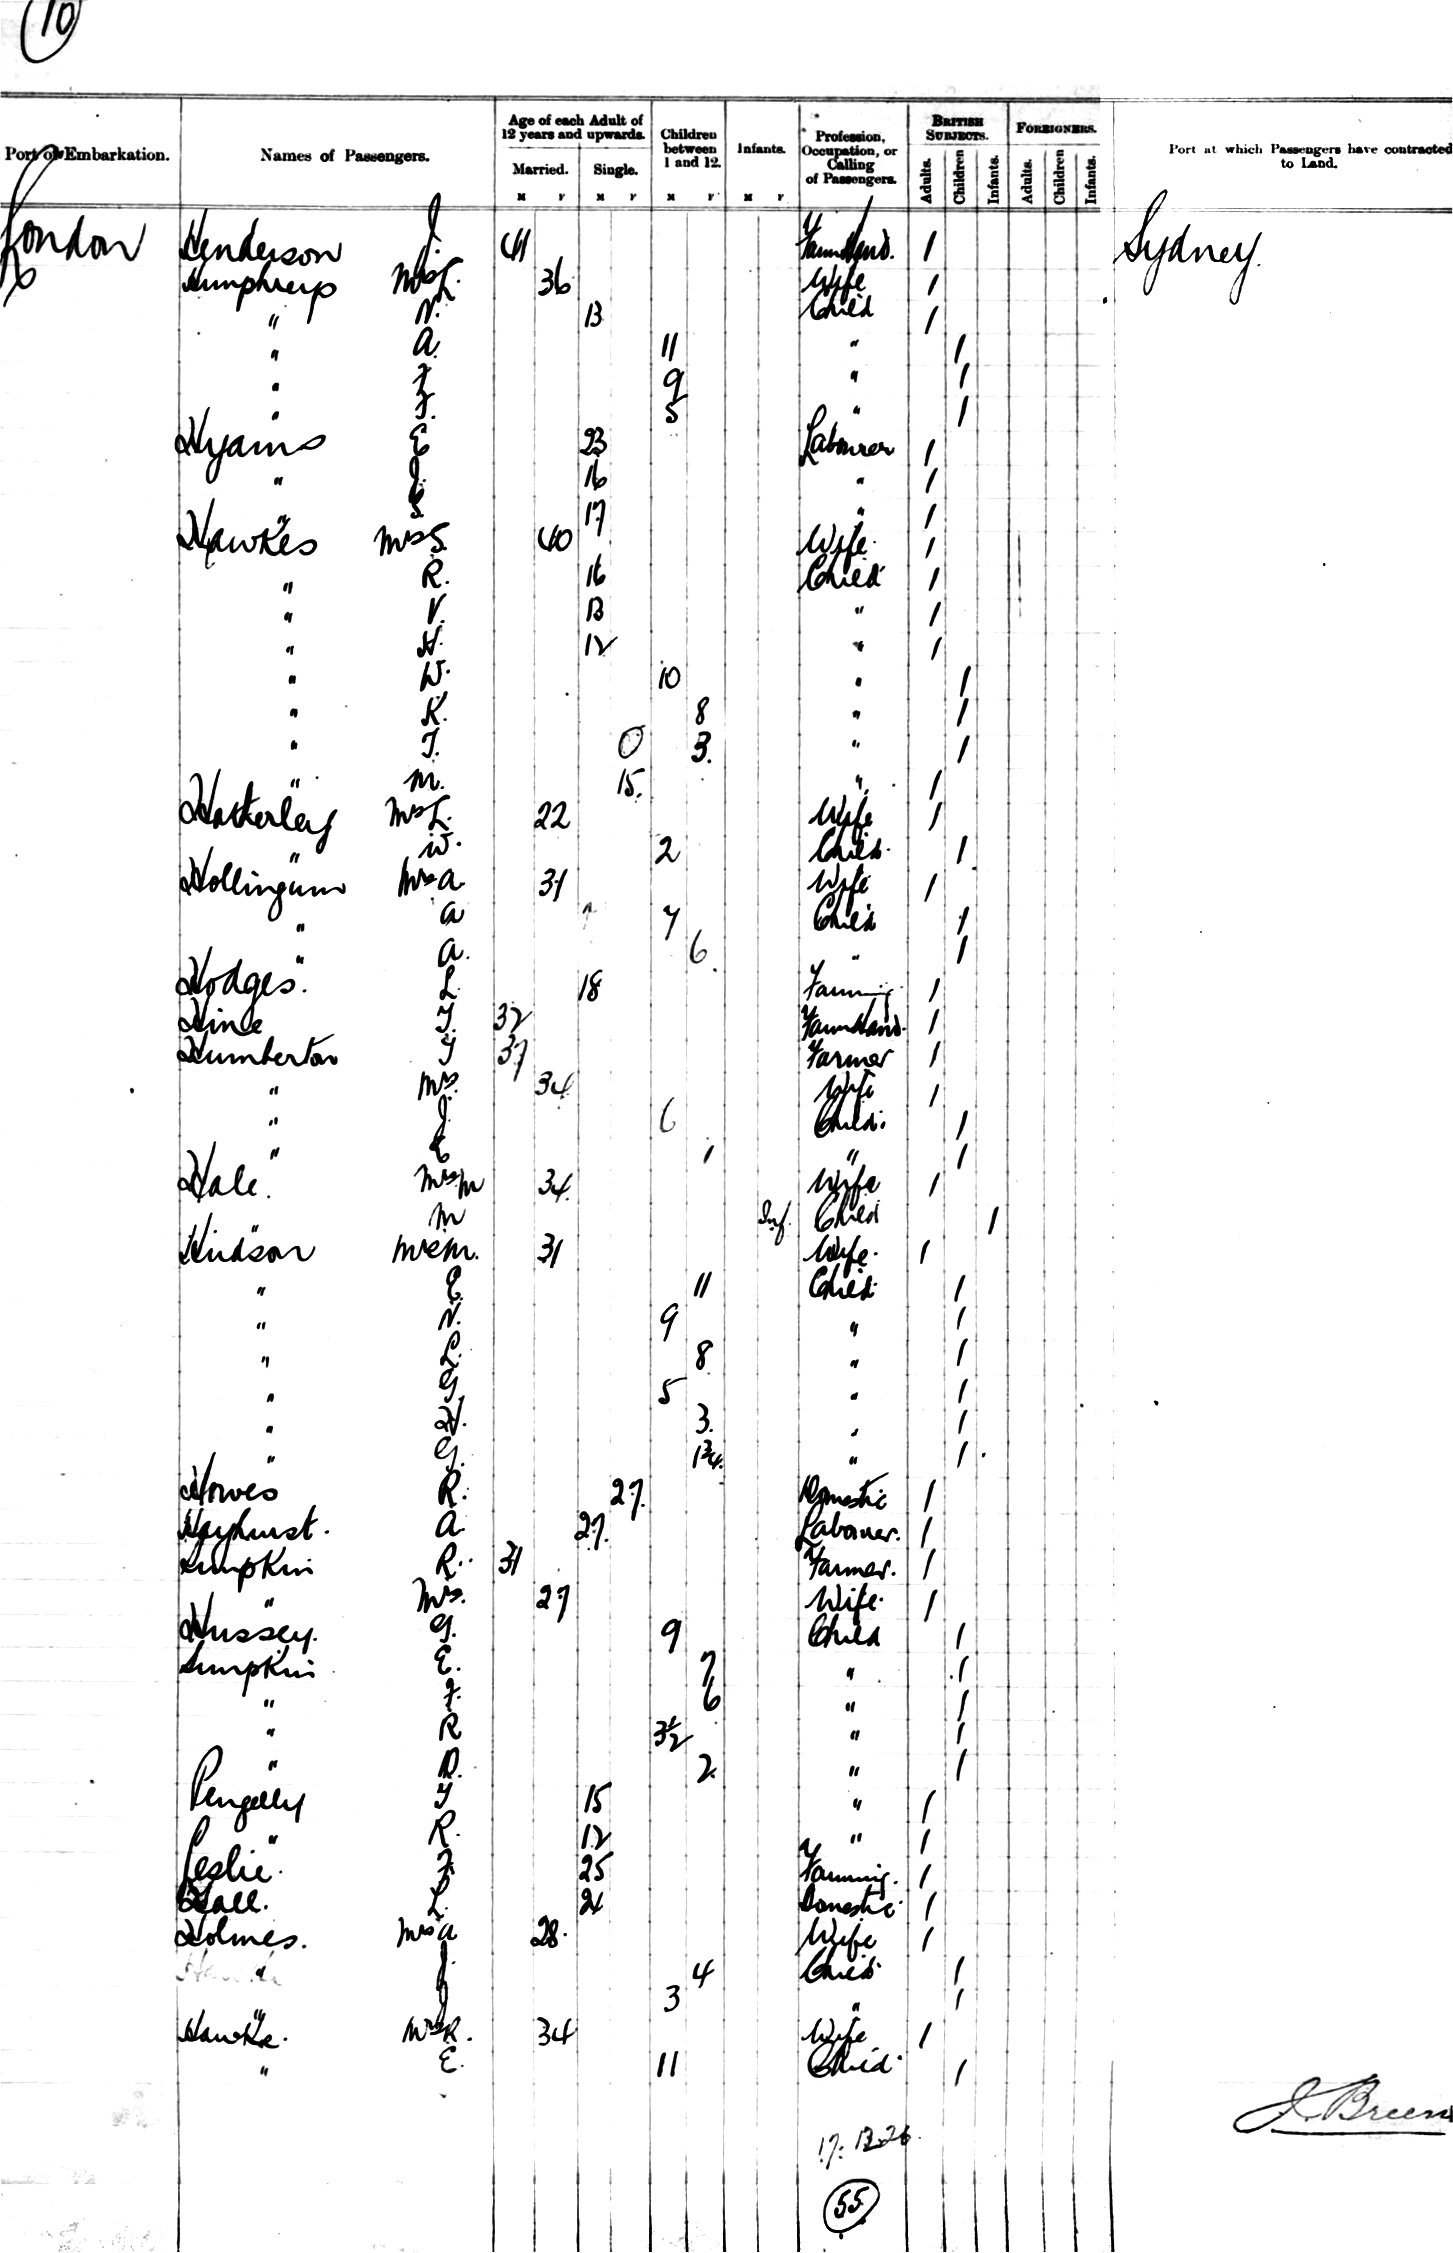 10
Port of Embarkation. Names of Passengers. Age of each Adult of 12 years and upwards. Children between 1 and 12. Infants. Profession, Occupation, or Calling of Passengers. BRITISH SUBJECTS. FOREIGNERS. Port at which Passengers have contracted to Land.
Married. Single. Adults. Children Infants. Adults. Children Infants.
M F M F M F M F
London Henderson J. 41 Farm Hand. 1 Sydney.
Humphreys Mrs L. 36 Wife 1
" N. 13 Child 1
" A. 11 " 1
" F. 9 " 1
" F. 5 " 1
Hyams E 23 Labourer 1
" J. 16 " 1
" 17 " 1
Hawkes Mrs S. 40 Wife 1
" R. 16 Child 1
" V. 13 " 1
" H. 12 " 1
" W. 10 " 1
" K. 8 " 1
" T. 0 3. " 1
" M. 15. " 1
Hatherley Mrs L. 22 Wife 1
" W. 2 Child. 1
Hollingum Mrs A. 31 Wife 1
" A 7 Child 1
" A. 6. " 1
Hodges. L. 18 Farming 1
Hine T. 32 Farm Hand. 1
Humberton T 37 Farmer 1
" Mrs. 34 Wife 1
" J. 6 Child. 1
" E 1 " 1
Hale. Mrs M 34. Wife 1
" M Inf. Child 1
Hudson Mrs M. 31 Wife. 1
" E. 11 Child 1
" N. 9 " 1
" L. 8 " 1
" G. 5 " 1
" H. 3. " 1
" G. 1¾. " 1
Howes R. 27. Domestic 1
Hayhurst. A. 27. Labourer. 1
Lumpkin R. 31 Farmer. 1
" Mrs. 27 Wife. 1
Hussey. G. 9 Child 1
Lumpkin E. 7 " 1
" F. 6 " 1
" R 3½ " 1
" D. 2. " 1
Pengelly T 15 " 1
" R. 12 " 1
Leslie. F. 25 Farming. 1
Hall. L. 21 Domestic 1
Holmes. Mrs A 28. Wife 1
" J. 4 Child 1
" J 3 " 1
Hawke. Mrs R. 34 Wife 1
" E. 11 Child. 1
J. Breen
17.12.26.
55